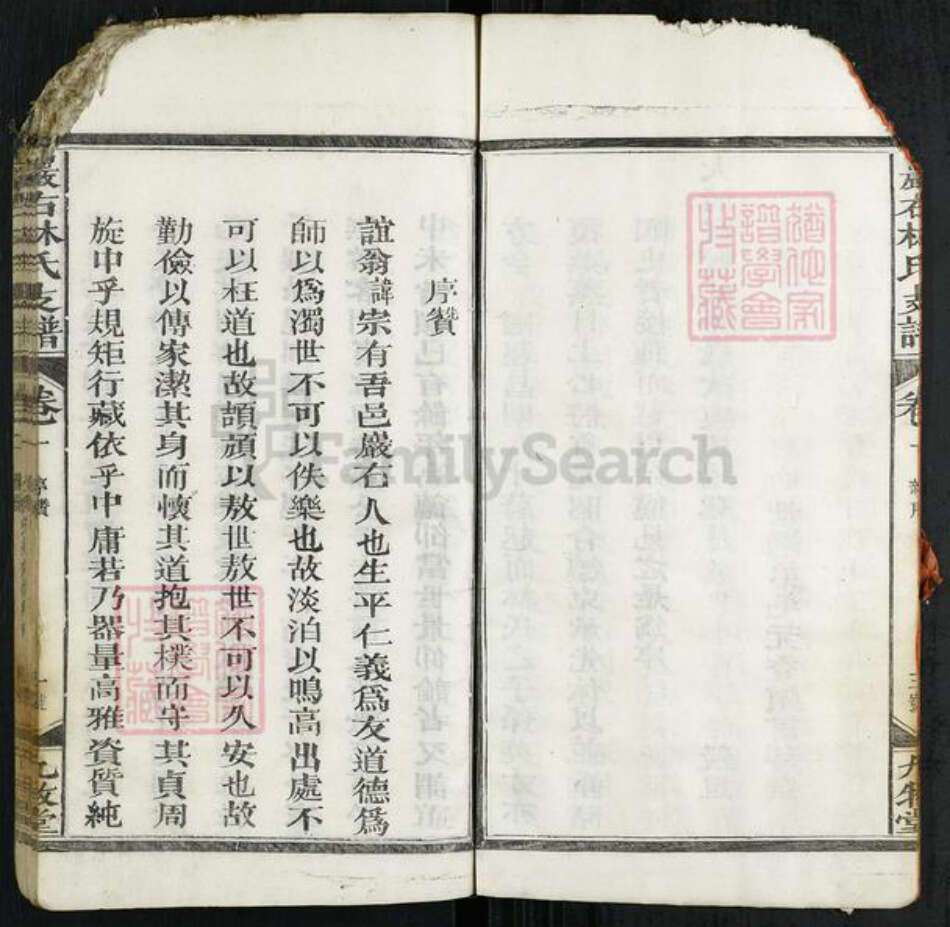 猶他家
譜學會
收藏
序贊
誼翁諱宗有吾邑巖石人也生平仁義爲友道德爲
師以爲濁世不可以佚樂也故淡泊以鳴高出處不
可以枉道也故頡頏以敖世敖世不可以久安也故
勤儉以傳家潔其身而懷其道抱其樸而守其貞周
旋中乎規矩行藏依乎中庸若乃器量高雅資質純
巖石林氏支譜
卷一
序贊
九牧堂
FamilySearch